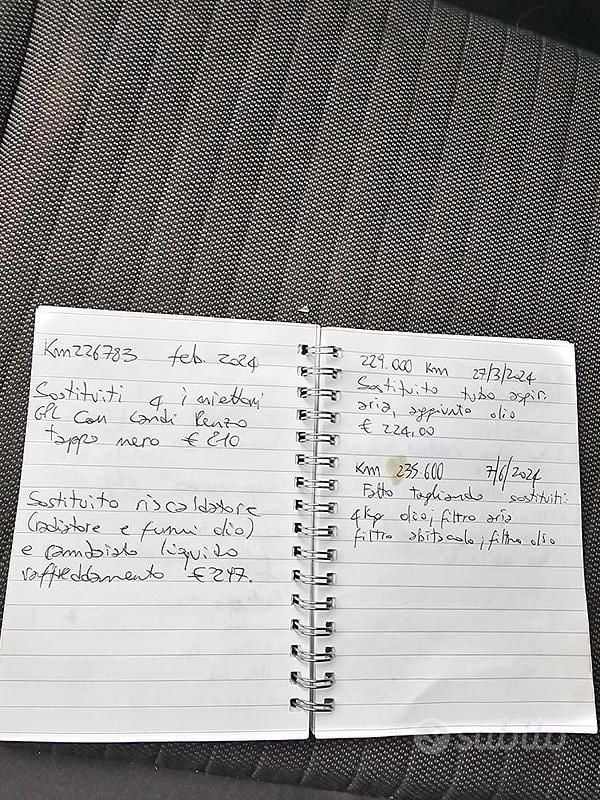 Km 226783 feb. 2024
Sostituiti 4 iniettori
GPL con Landi Renzo
tappo nero € 210
Sostituito riscaldatore
(radiatore e fumi olio)
e cambiato liquido
raffreddamento € 247.
229.000 Km 27/3/2024
Sostituito tubo aspir.
aria, aggiunto olio
€ 224,00
Km 235.600 7/6/2024
Fatto tagliando sostituiti:
4 kg olio, filtro aria
filtro abitacolo, filtro olio
subito